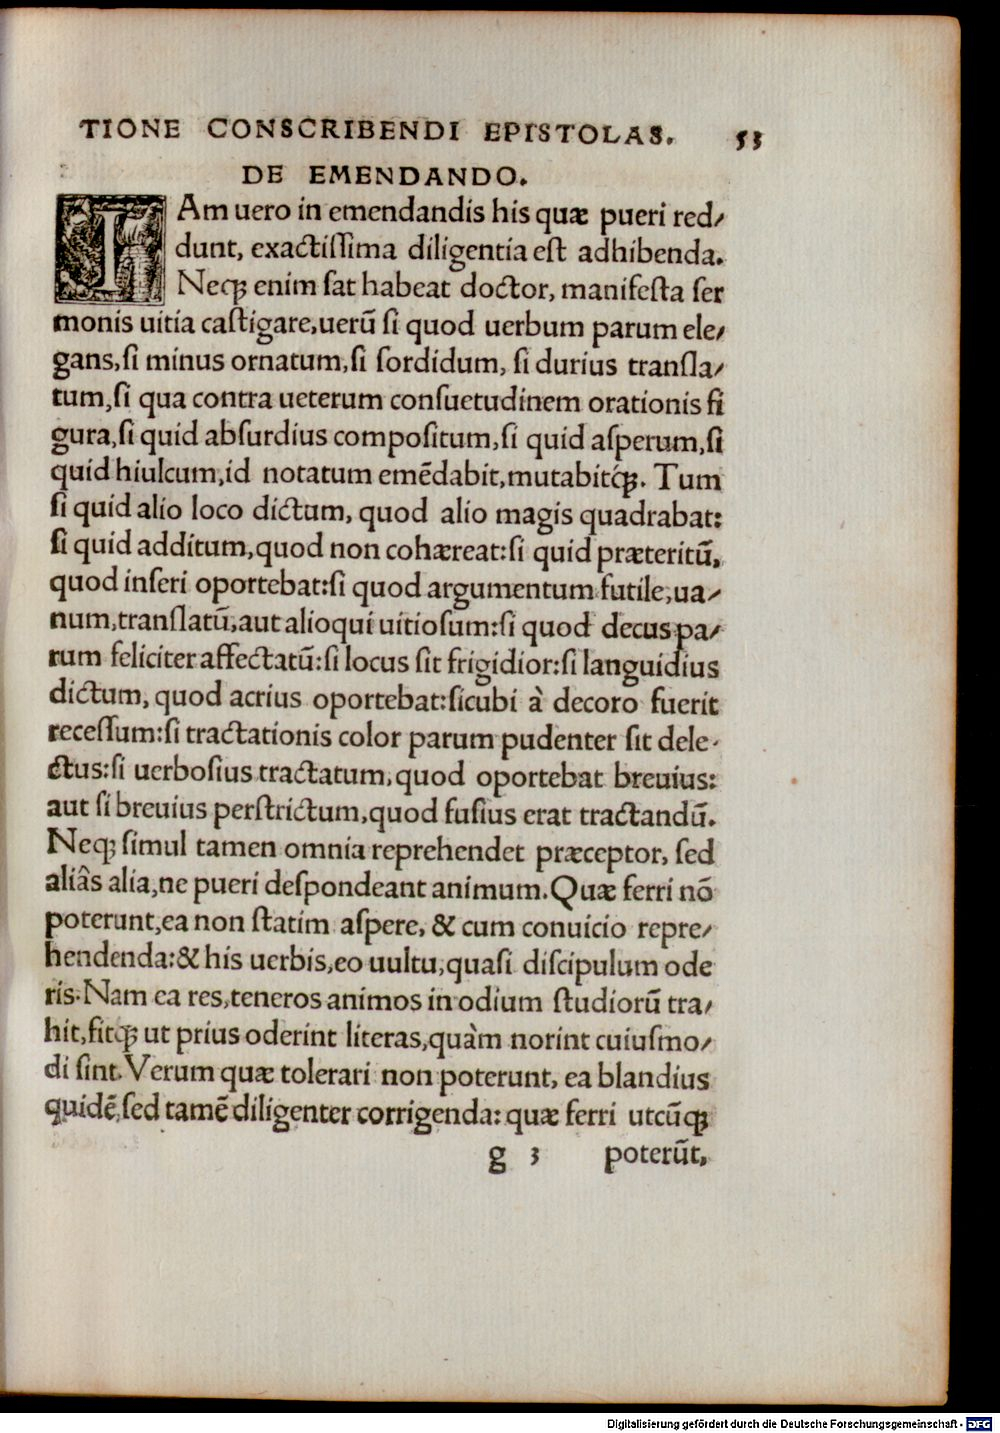 TIONE CONSCRIBENDI EPISTOLAS. 53
DE EMENDANDO.
IAm uero in emendandis his quæ pueri red/
dunt, exactissima diligentia est adhibenda.
Neqꝫ enim sat habeat doctor, manifesta ser
monis uitia castigare, uerū si quod uerbum parum ele/
gans, si minus ornatum, si sordidum, si durius transla/
tum, si qua contra ueterum consuetudinem orationis fi
gura, si quid absurdius compositum, si quid asperum, si
quid hiulcum, id notatum emēdabit, mutabitq́ꝫ. Tum
si quid alio loco dictum, quod alio magis quadrabat:
si quid additum, quod non cohæreat: si quid præteritū,
quod inseri oportebat: si quod argumentum futile, ua/
num, translatū, aut alioqui uitiosum: si quod decus pa/
rum feliciter affectatū: si locus sit frigidior: si languidius
dictum, quod acrius oportebat: sicubi à decoro fuerit
recessum: si tractationis color parum pudenter sit dele-
ctus: si uerbosius tractatum, quod oportebat breuius:
aut si breuius perstrictum, quod fusius erat tractandū.
Neqꝫ simul tamen omnia reprehendet præceptor, sed
aliâs alia, ne pueri despondeant animum. Quæ ferri nō
poterunt, ea non statim aspere, & cum conuicio repre/
hendenda: & his uerbis, eo uultu, quasi discipulum ode
ris. Nam ea res, teneros animos in odium studiorū tra/
hit, fitq́ꝫ ut prius oderint literas, quàm norint cuiusmo/
di sint. Verum quæ tolerari non poterunt, ea blandius
quidē, sed tamē diligenter corrigenda: quæ ferri utcūqꝫ
g 3 poterūt,
Digitalisierung gefördert durch die Deutsche Forschungsgemeinschaft - DFG